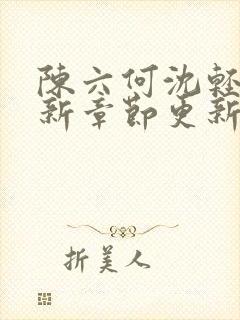 陳六何沈輕
新章節更新
折美人